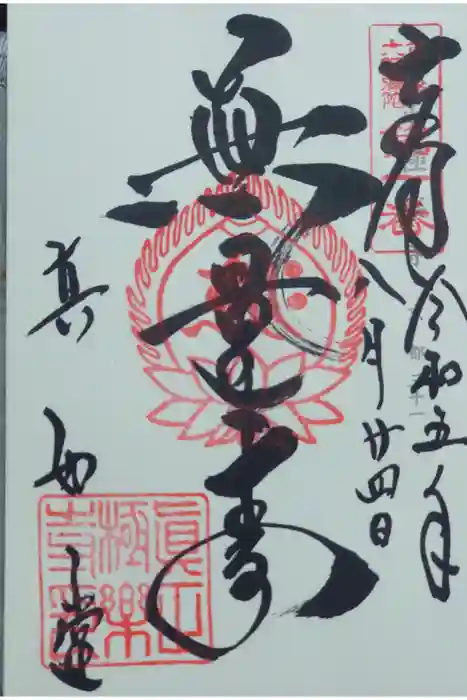 奉拝
令和五年
八月廿四日
無量壽
真如堂
眞正
極樂